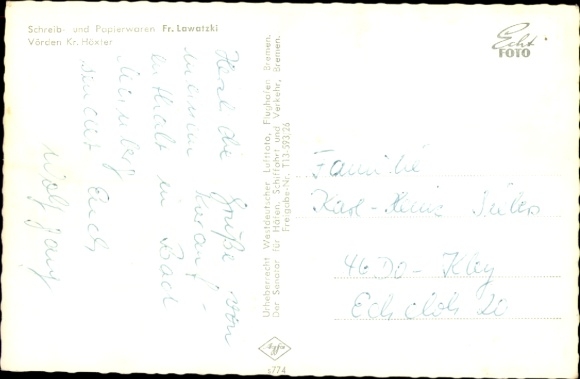 Schreib- und Papierwaren Fr. Lawatzki
Vörden Kr. Höxter
Herzliche Grüße von
meinem Kurauf-
enthalt in Bad
sendet Euch
Wolfgang
Urheberrecht Westdeutscher Luftfoto, Flughafen Bremen.
Der Senator für Häfen, Schiffahrt und Verkehr, Bremen.
Freigabe-Nr. T13-593/26
Echt
FOTO
Familie
Karl-Heinz
46 DO-Kley
Echeloh 20
Agfa
s774